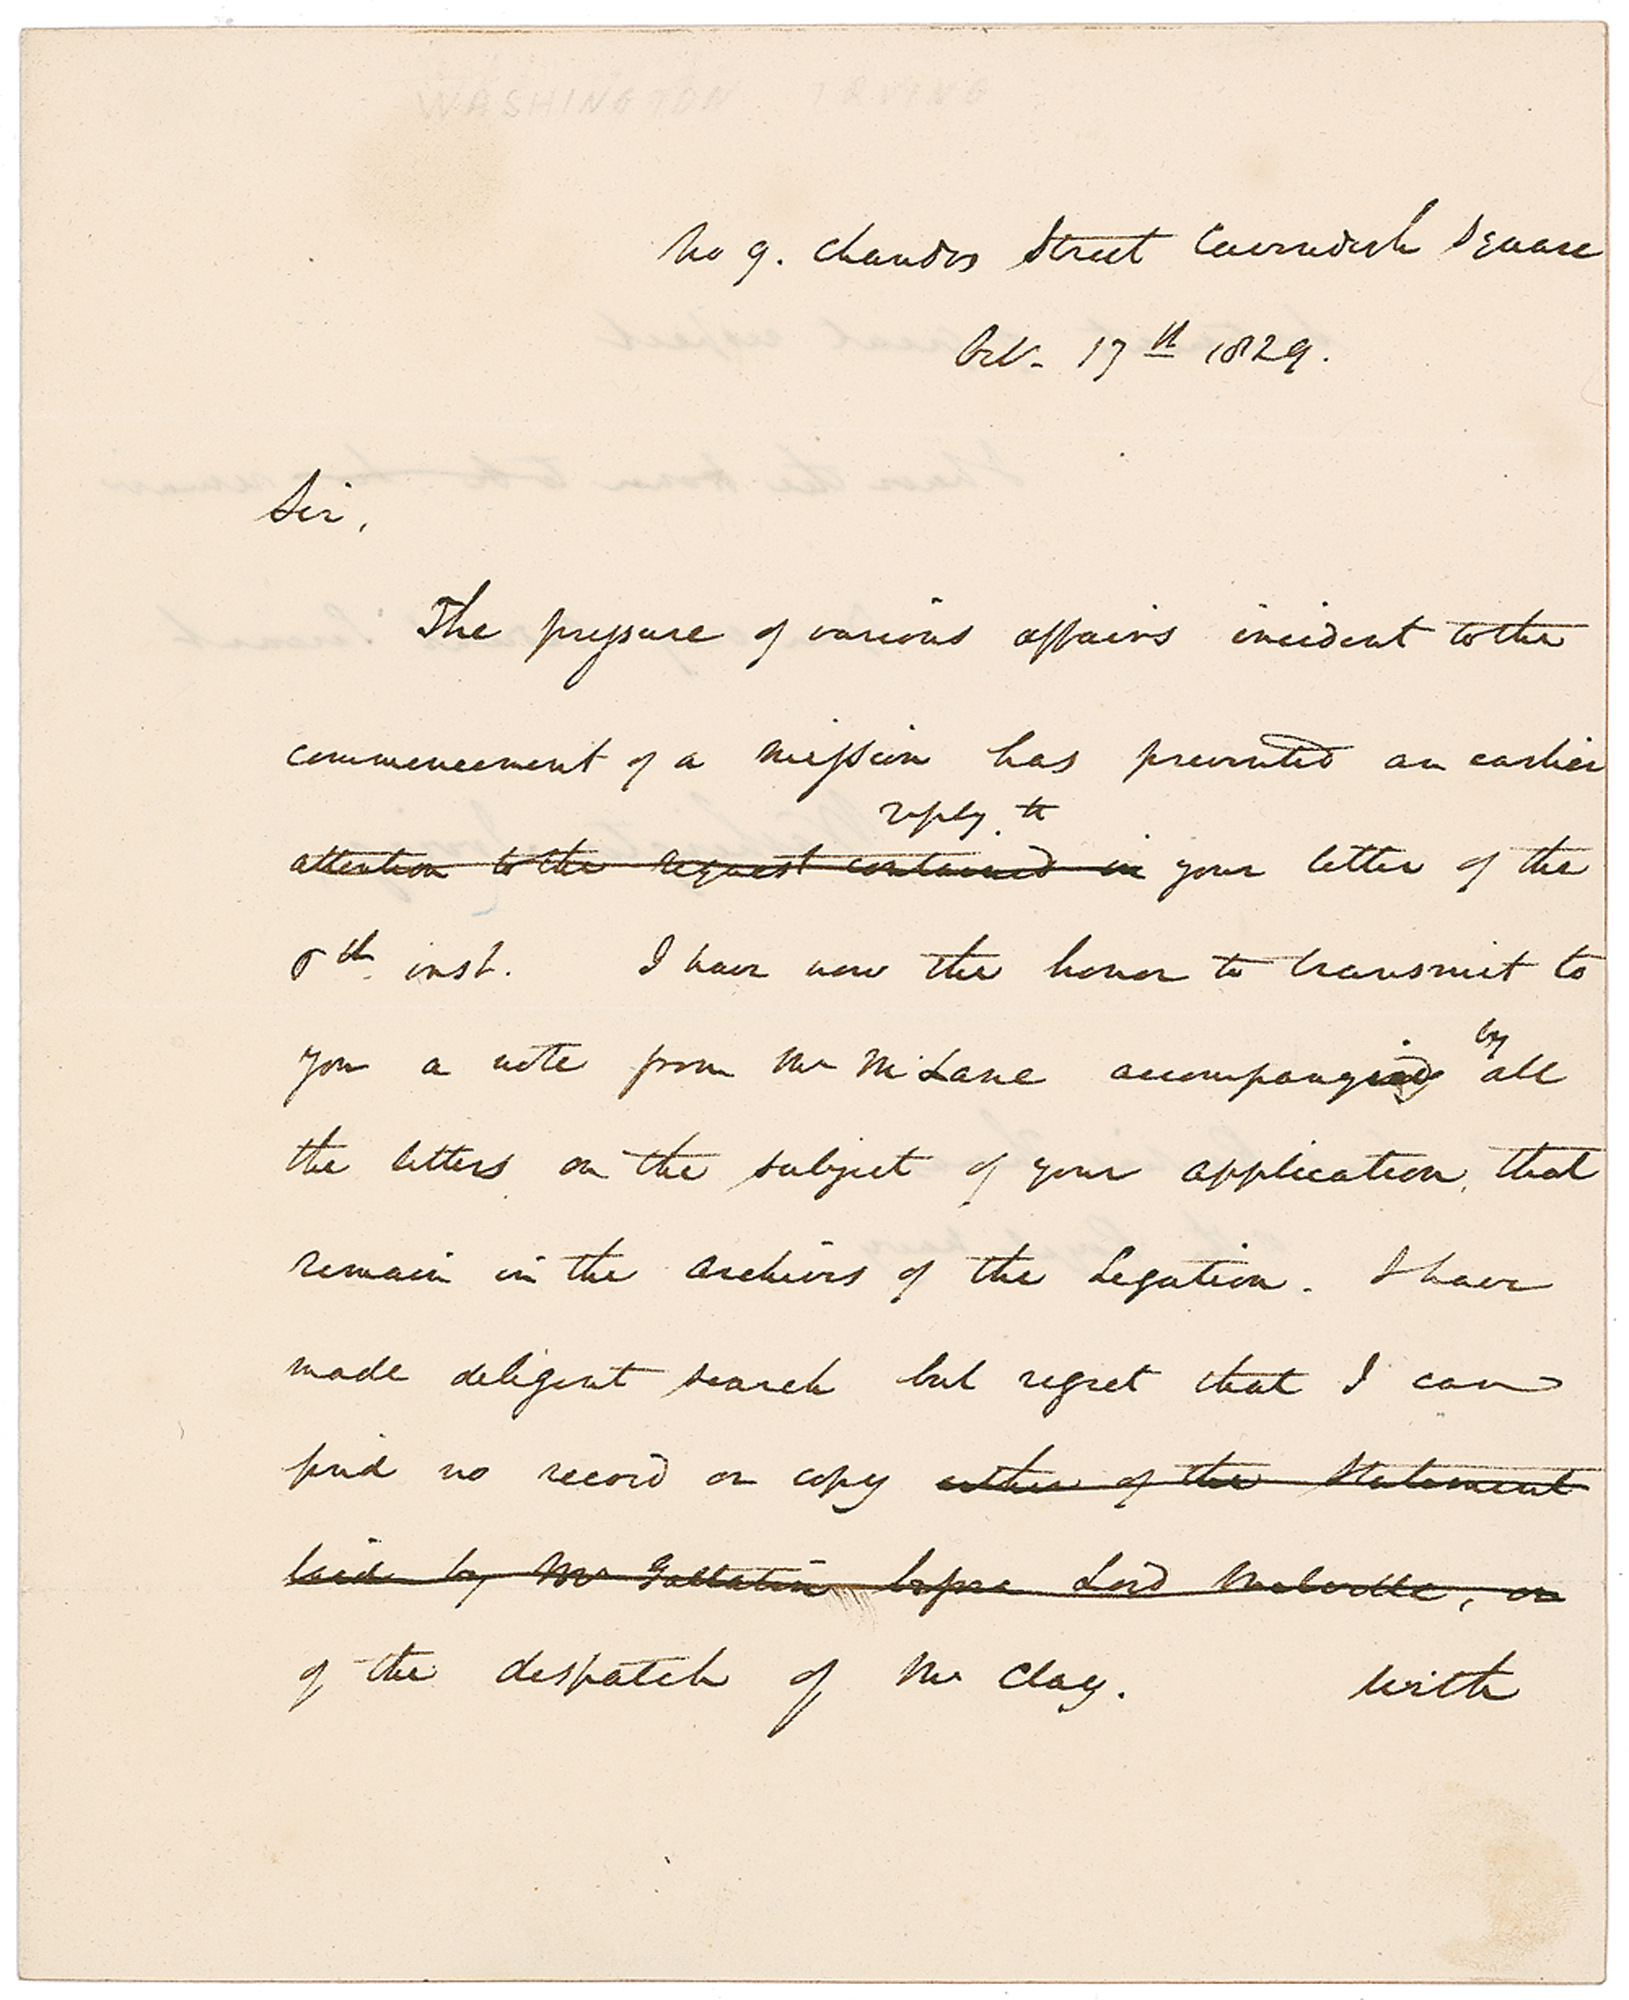 WASHINGTON IRVING
No 9. Chandos Street Cavendish Square
Oct. 17th 1829.
Sir,
The pressure of various affairs incident to the
commencement of a mission has prevented an earlier
reply to
attention to the request contained in your letter of the
8th inst. I have now the honor to transmit to
by
you a note from Mr McLane accompanied all
the letters on the subject of your application, that
remain in the archives of the Legation. I have
made diligent search but regret that I can
find no record or copy either of the statement
laid by Mr Gallatin before Lord Melville, or
of the despatch of Mr Clay. With